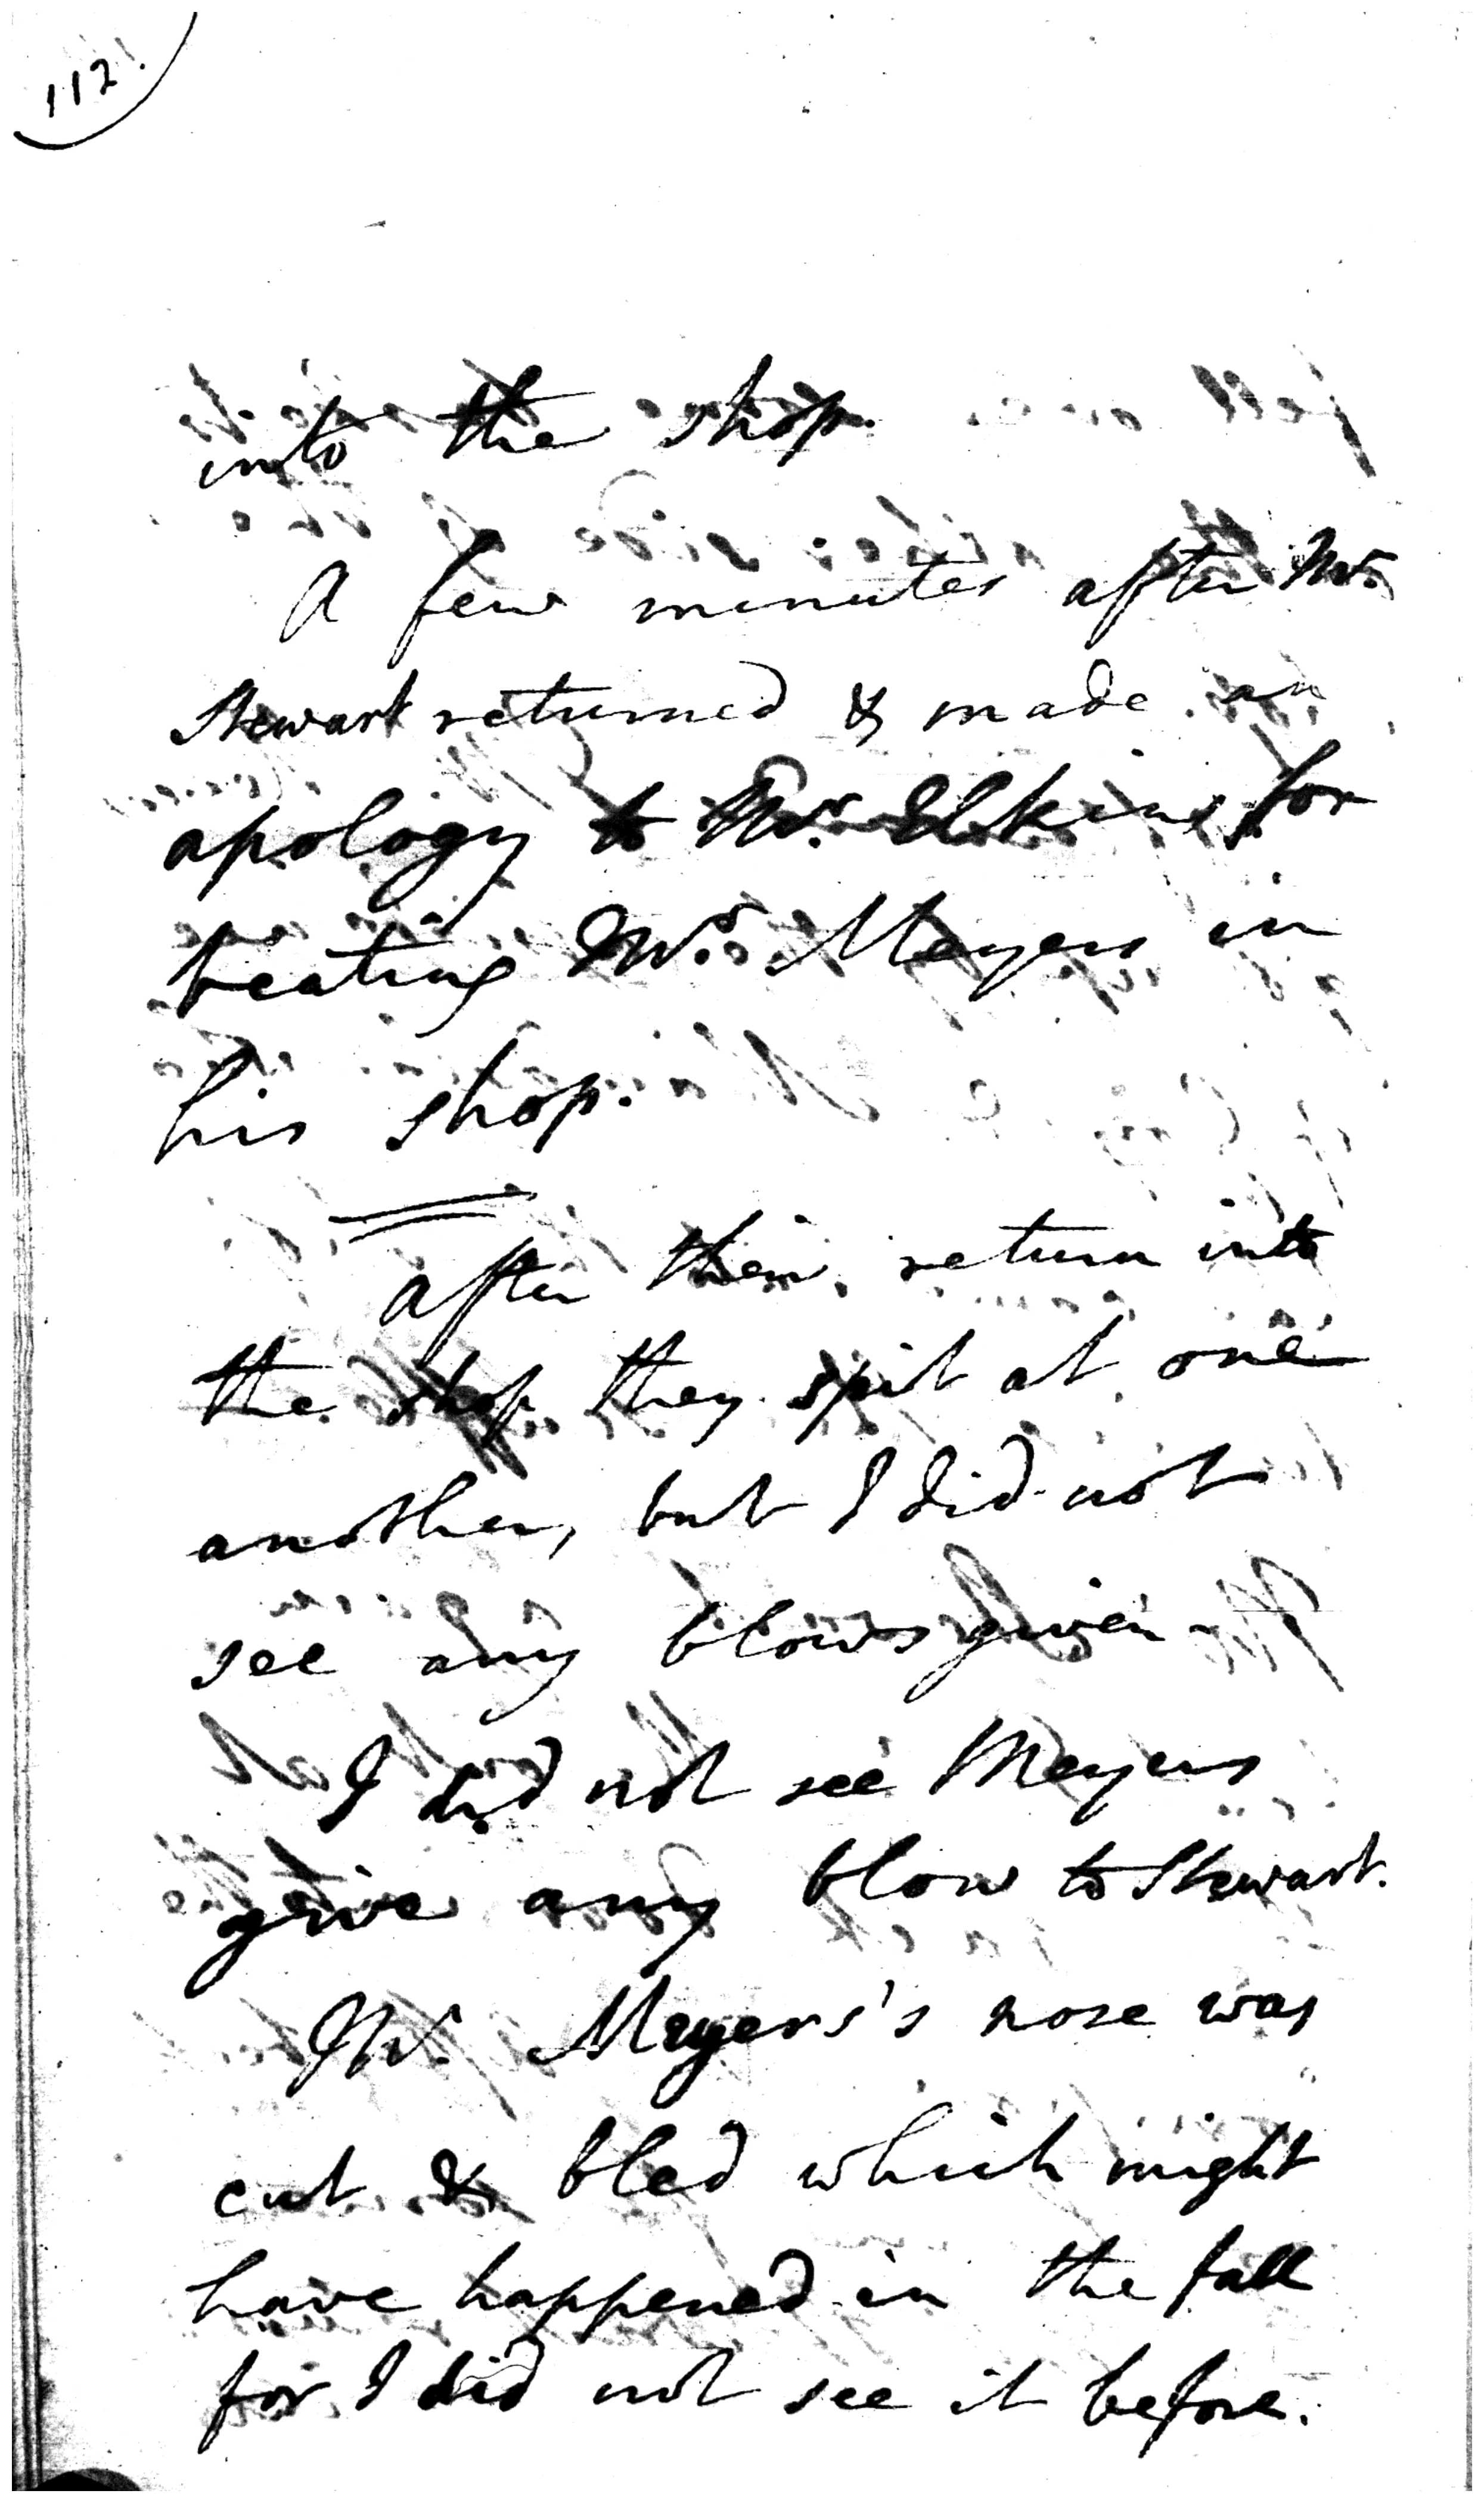 112.
into the shop.
A few minutes after Mr.
Stewart returned & made an
apology to Mr. Elkins for
beating Mr. Meyers in
his shop.
After their return into
the shop they spit at one
another, but I did not
see any blows given
I did not see Meyers
give any blow to Stewart.
Mr. Meyers's nose was
cut & bled which might
have happened in the fall
for I did not see it before.